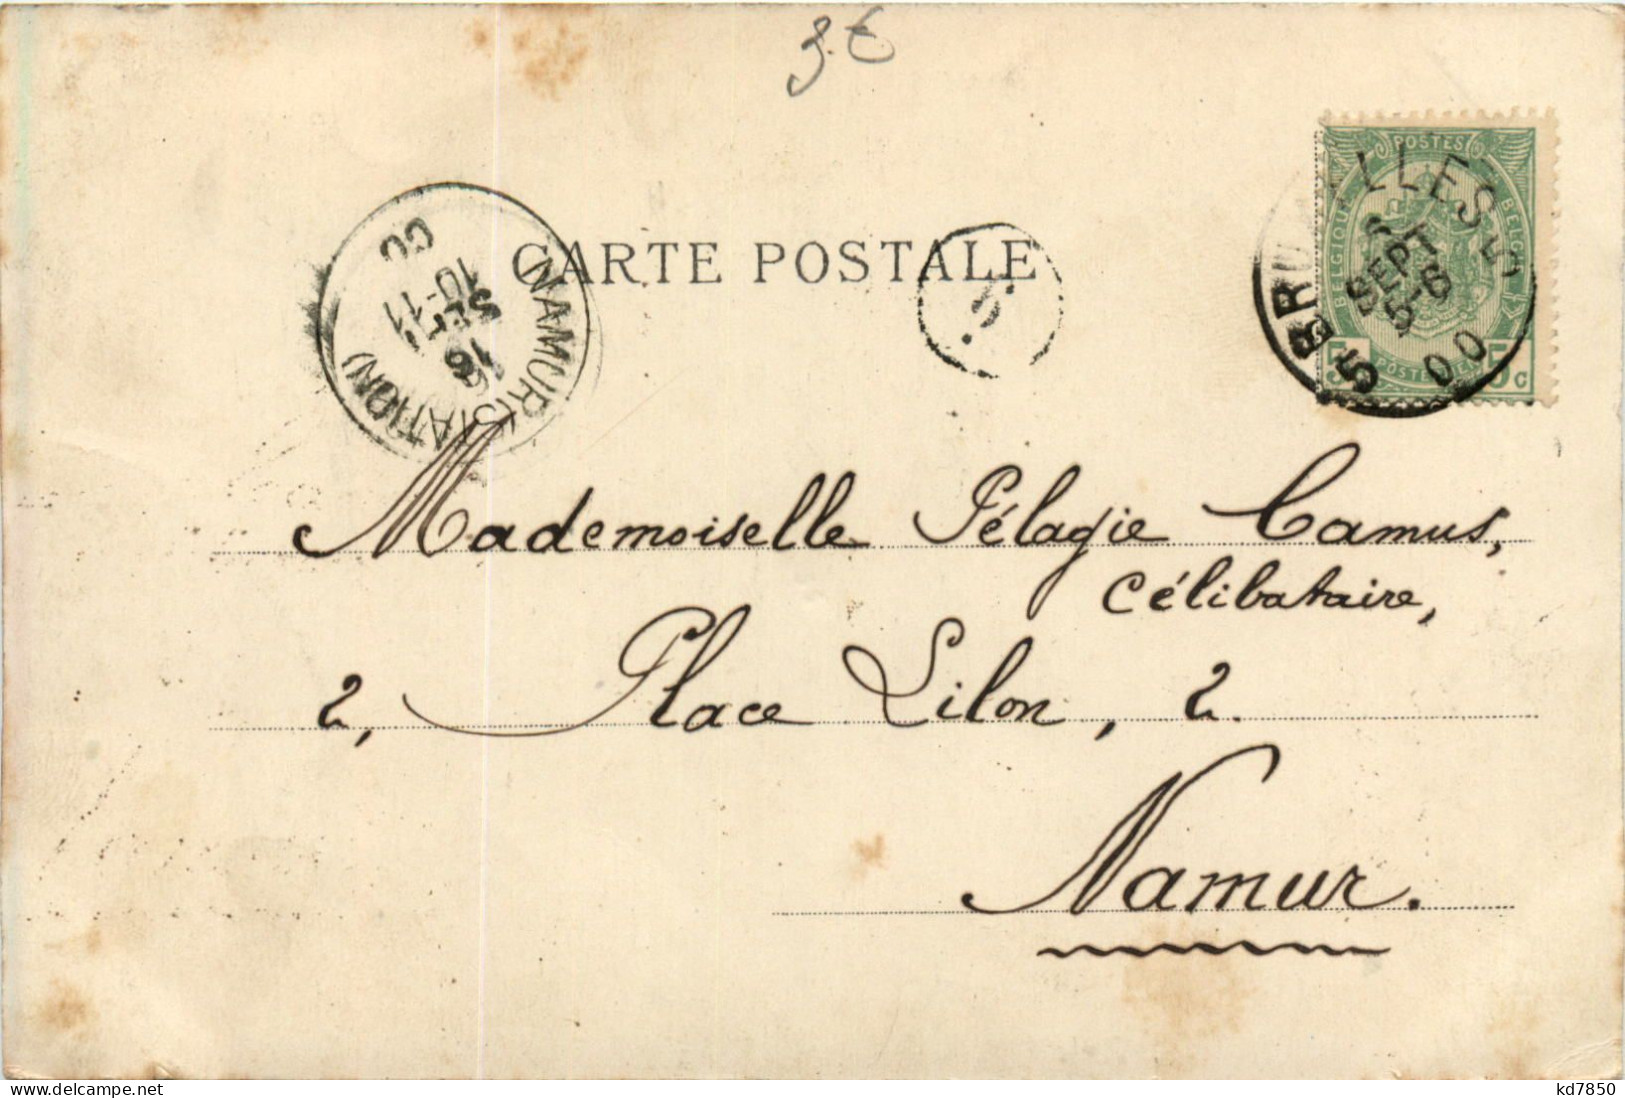 3.€
POSTES
BELGIQUE
BELGIE
5
5c
BRUXELLES 5
SEPT
5-6
00
5
NAMUR (STATION)
16
SEPT
10-11
00
CARTE POSTALE
Mademoiselle Pélagie Camus,
Célibataire,
2, Place Lilon, 2.
Namur.
www.delcampe.net
kd7850